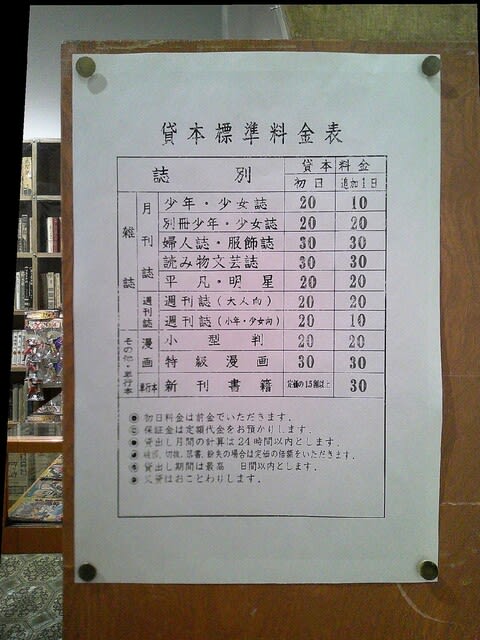 貸本標準料金表
誌別 貸本料金
初日 追加1日
雑誌 月刊誌 少年・少女誌 20 10
別冊少年・少女誌 20 20
婦人誌・服飾誌 30 30
読み物文芸誌 30 30
平凡・明星 20 20
週刊誌 週刊誌(大人向) 20 20
週刊誌(少年・少女向) 20 10
その他・単行本 漫画 小型判 20 20
特級漫画 30 30
単行本 新刊書籍 定価の1.5割以上 30
初日料金は前金でいただきます.
保証金は定額代金をお預かりします.
貸出し月間の計算は24時間以内とします.
破損、切抜、落書、紛失の場合は定価の倍額をいただきます.
貸出し期間は最高 日間以内とします.
又貸はおことわりします.